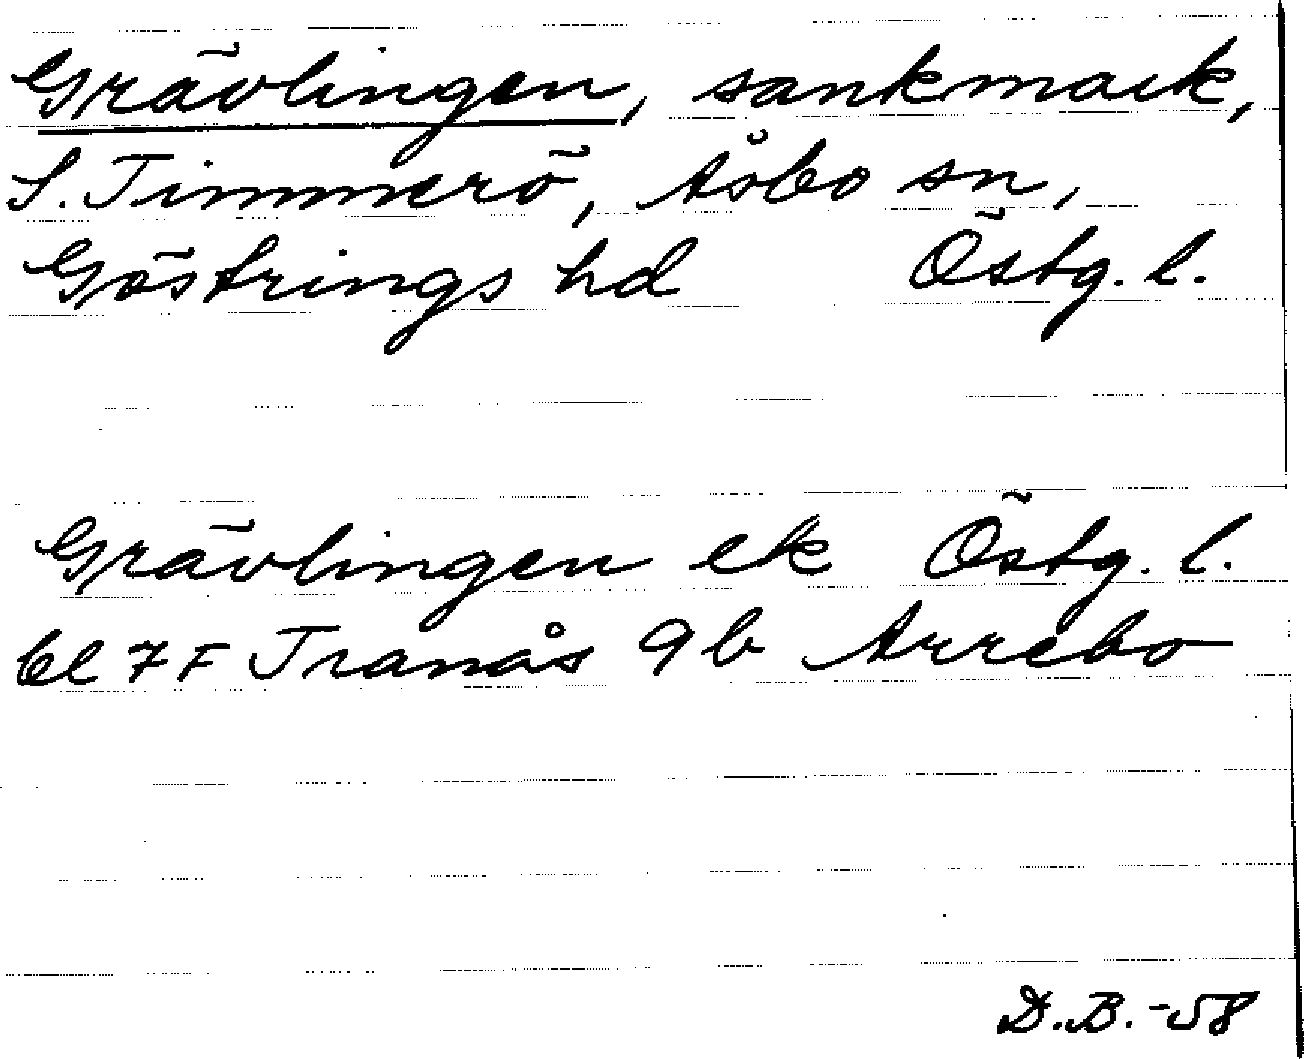 Grävlingen, sankmark,
S. Timmerö, Åsbo sn,
Göstrings hd Östg. l.
Grävlingen ek Östg. l.
bl 7F Tranås 9b Arrebo
D.B.-58